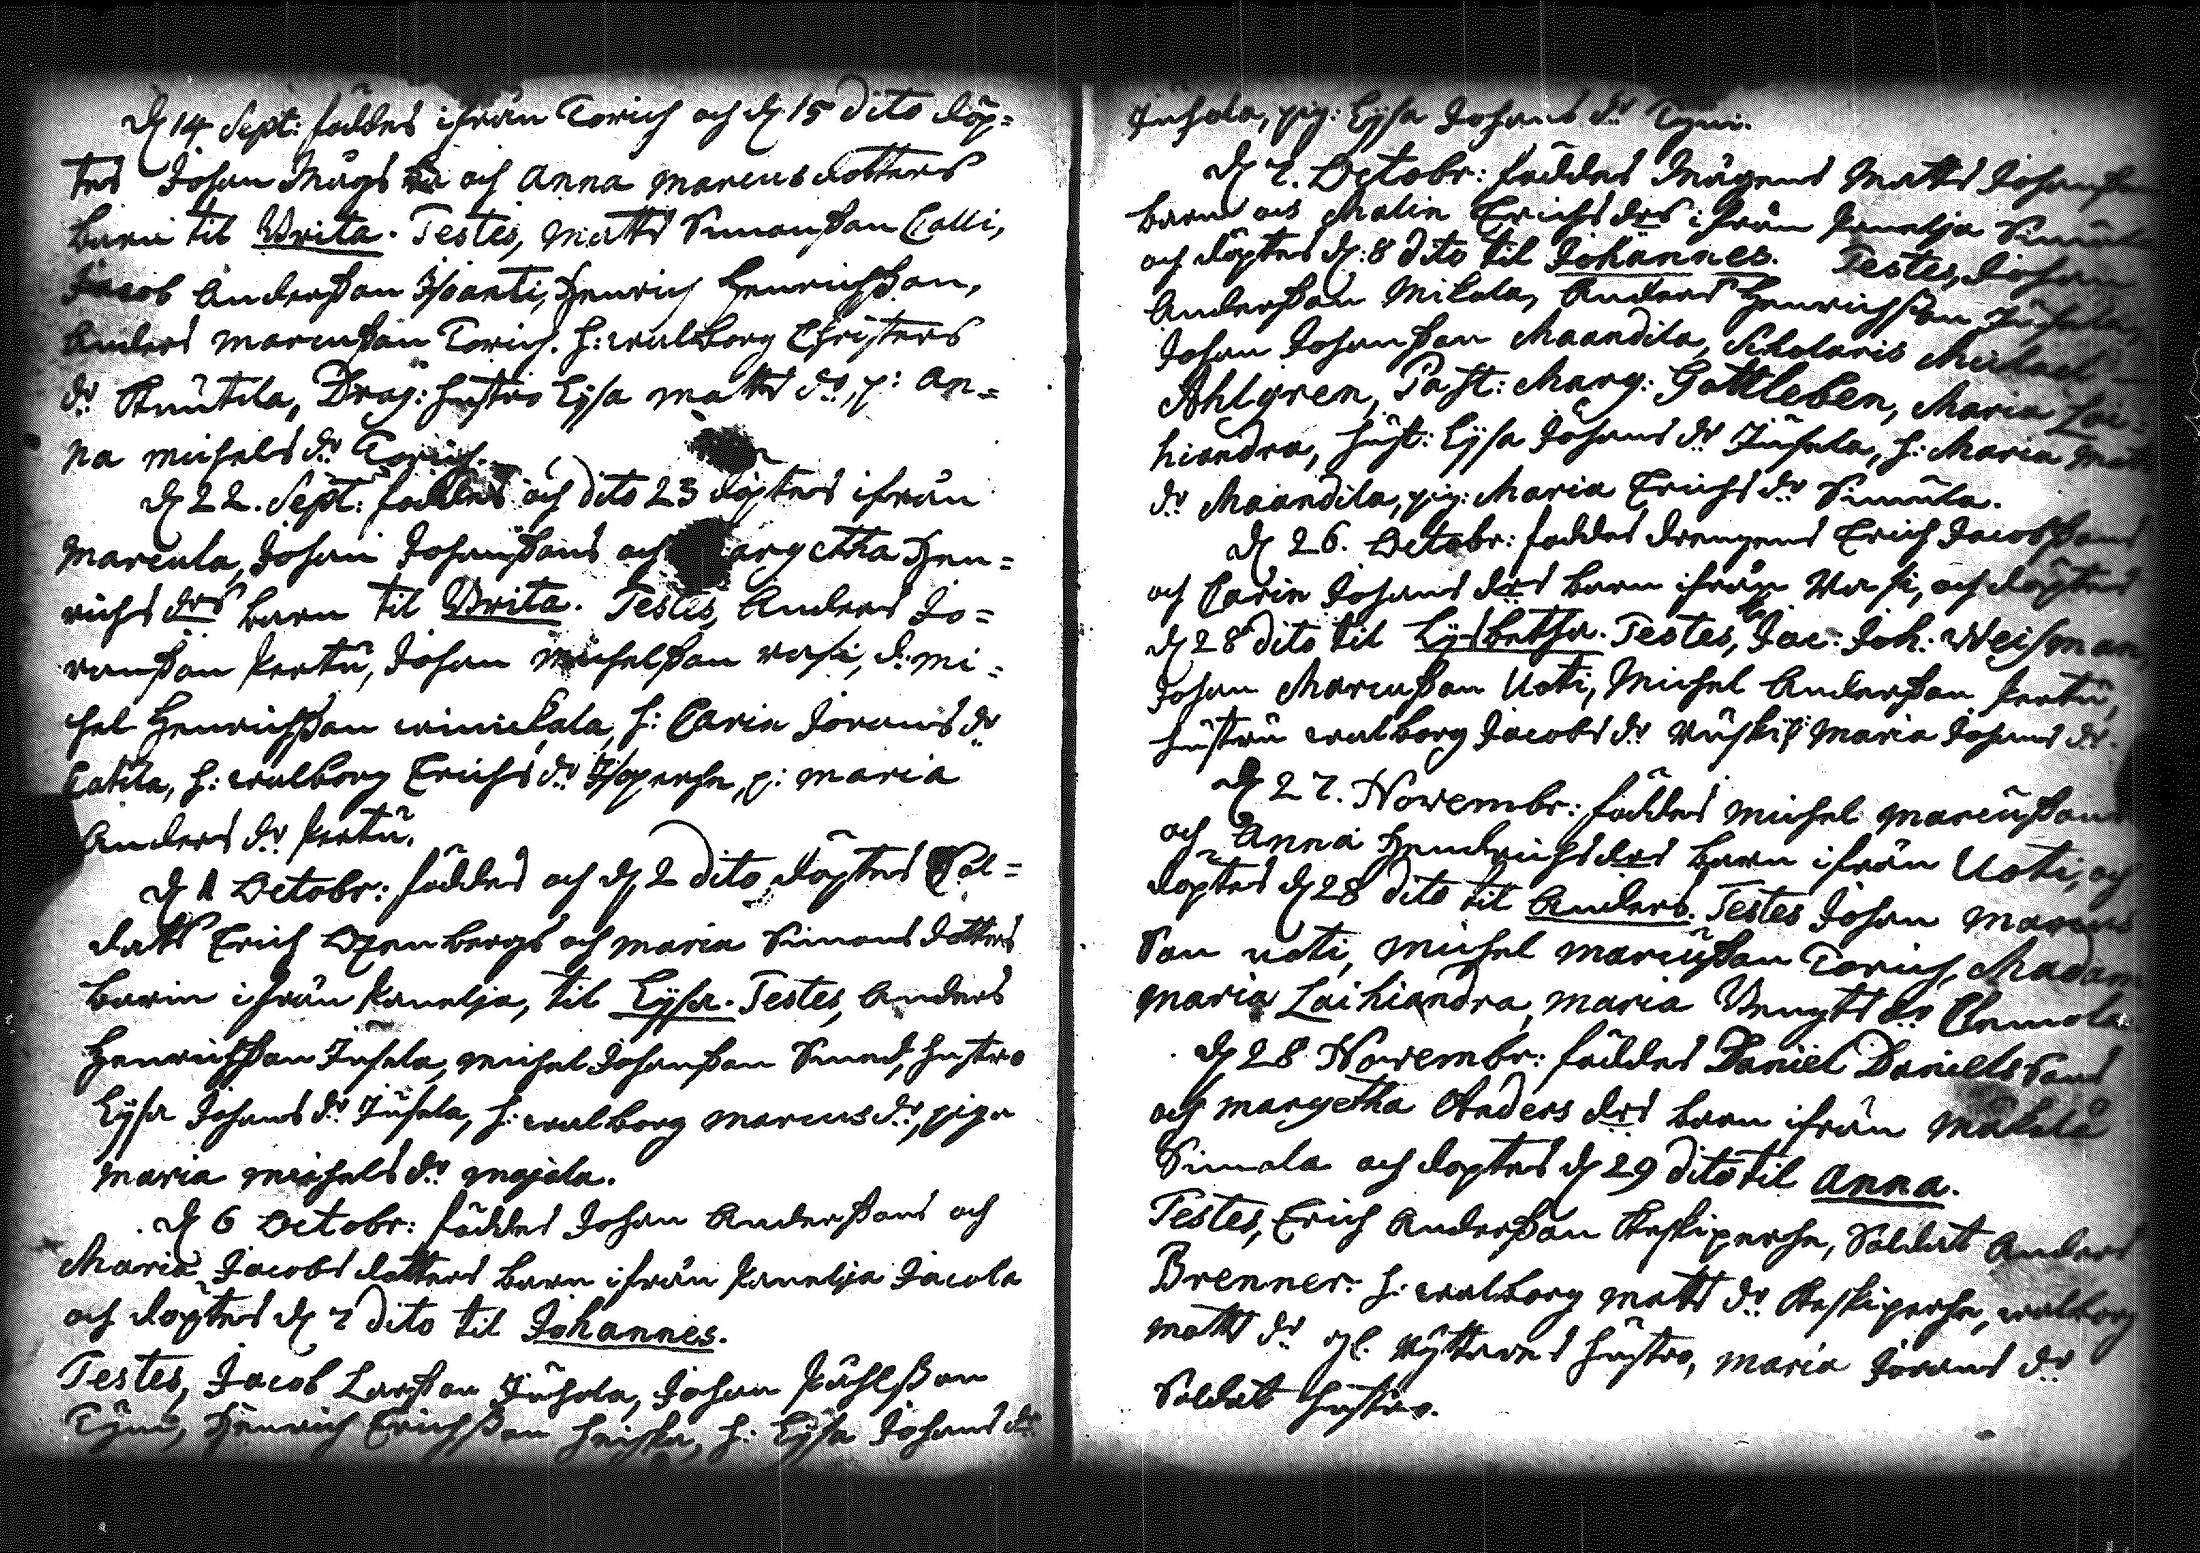 d 14 Sept: föddes ifrån Torich och d 15 dito döp=
tes Johan Mågs och Anna Marcus dotters
barn til Brita. Testes, Matts Simonsson Calli,
Jacob Andersson Isoanti, Henrich Henrichsson,
Anders Marcusson Torich. h: walborg Christers
dr Knutila, Drag: hustro Lysa Matts dr, p: An=
na Michels dr Torich.
d 22. Sept: föddes och dito 23 döptes ifrån
Marcula, Johan Johanssons och Margetha Hen=
richs drs barn til Brita. Testes, Anders Jö=
ransson Pertu, Johan Michelsson vasi, d: Mi=
chel Henrichsson winickala, h: Carin Jörans dr
Catila, h: walborg Erichs dr Isoperhe, p: Maria
Anders dr Pertu.
d 1 Octobr: föddes och d 2 dito döptes Sol=
dats Erich Oxenbergs och Maria Simons dotters
barn ifrån Panelja, til Lysa. Testes, Anders
Henrichsson Jusela, Michel Johansson Smed, hustro
Lysa Johans dr Jusela, h: walborg Marcus dr, piga
Maria Michels dr Mojola.
d 6 Octobr: föddes Johan Anderssons och
Maria Jacobs dotters barn ifrån Panelja Jacola
och döptes d 7 dito til Johannes.
Testes, Jacob Larsson Juhola, Johan Påhlsson
Tyni, Henrich Erichsson heiska, h: Lysa Johans dr
Juhola, pig: Lysa Johans dr Tyni.
d 7. Octobr: föddes Mågens Matts Johanssons
barn och Malin Erichs drs ifrån Panelja Simula
och döptes d: 8 dito til Johannes. Testes, Johan
Andersson Mikola, Anders Henrichsson Jusela,
Johan Johansson Maandila, Scholaris Michael
Ahlgren, Past: Marg: Gottleben, Maria Lai-
hiandra, hust: Lysa Johans dr Jusela, h: Maria Matts
dr Maandila, pig: Maria Erichs dr Simula.
d 26. Octobr: föddes drengens Erich Jacobssons
och Carin Johans drs barn ifrån Vasi, och döptes
d 28 dito til Lysbetha. Testes, Jac: Joh: Weisman,
Johan Marcusson Uoti, Michel Andersson Pertu,
hustru walborg Jacobs dr Ruski, p: Maria Johans dr.
d 27. Novembr: föddes Michel Marcussons
och Anna Hendrichs drs barn ifrån Uoti, och
döptes d 28 dito til Anders. Testes Johan Marcus
Son uoti, Michel Marcusson Torich, Madam
Maria Laihiandra, Maria Bengts dr Clemola.
d 28 Novembr: föddes Daniel Daniels Sons
och Margetha Anders drs barn ifrån Mäkelä
Simola och döptes d 29 dito til Anna.
Testes, Erich Andersson Keskiperhe, Soldat Anders
Brenner. h: walborg Matts dr Keskiperhe, walborg
Matts dr gl. Ryttares hustro, Maria Jörans dr
Soldat hustro.